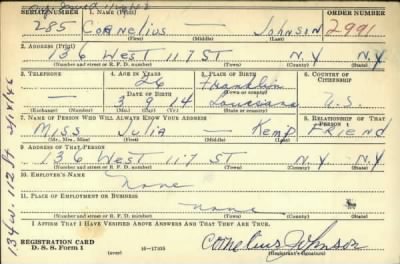 SERIAL NUMBER 1. NAME (Print) ORDER NUMBER
285 Cornelius — Johnson 2991
(First) (Middle) (Last)
2. ADDRESS (Print)
136 West 117 ST N.Y N.Y.
(Number and street or R. F. D. number) (Town) (County) (State)
3. TELEPHONE 4. AGE IN YEARS 5. PLACE OF BIRTH 6. COUNTRY OF CITIZENSHIP
26 Franklin
DATE OF BIRTH (Town or county)
— 3 9 14 Louisiana U.S.
(Exchange) (Number) (Mo.) (Day) (Yr.) (State or country)
7. NAME OF PERSON WHO WILL ALWAYS KNOW YOUR ADDRESS 8. RELATIONSHIP OF THAT PERSON
Miss Julia — Kemp Friend
(Mr., Mrs., Miss) (First) (Middle) (Last)
9. ADDRESS OF THAT PERSON
136 West 117 ST N.Y N.Y.
(Number and street or R. F. D. number) (Town) (County) (State)
10. EMPLOYER'S NAME
None
11. PLACE OF EMPLOYMENT OR BUSINESS
none
(Number and street or R. F. D. number) (Town) (County) (State)
I AFFIRM THAT I HAVE VERIFIED ABOVE ANSWERS AND THAT THEY ARE TRUE.
REGISTRATION CARD
D. S. S. Form 1 (over) 16—17105
Cornelius Johnson
(Registrant's signature)
134 W. 112 St